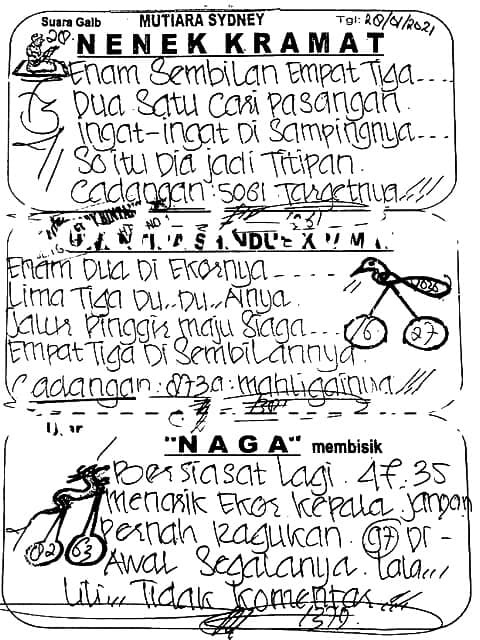 Suara Gaib MUTIARA SYDNEY Tgl: 20/01/2021
NENEK KRAMAT
Enam Sembilan Empat Tiga....
Dua Satu Cari Pasangan.
Ingat-ingat Di Sampingnya...
So itu Dia jadi Titipan.
Cadangan: 5081 Targetnya
Enam Dua Di Ekornya
Lima Tiga Du,, Du,, Anya.
Jalur Pinggir maju Siaga....
Empat Tiga Di Sembilannya
Cadangan: 8732: mahligainya
16 27
"NAGA" membisik
Bersiasat Lagi. 47.35
menarik Ekor Kepala. Jangan
Pernah Ragukan. 97 Di -
Awal Segalanya. Lala,,,
Lili,,, Tidak Komentar
02 63